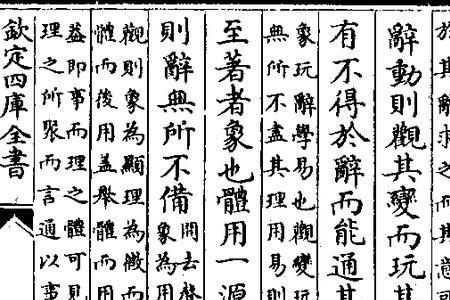 於其辭求之而其意可
辭動則觀其變而玩其
有不得於辭而能通其
象玩辭學易也觀變玩
無所不盡其理用易則
至著者象也體用一源
則辭無所不備
問去聲
象為用
觀則象為顯理為微而
體而後用盖舉體而用
盖即事而理之體可見
理之所聚而言通以事
欽定四庫全書